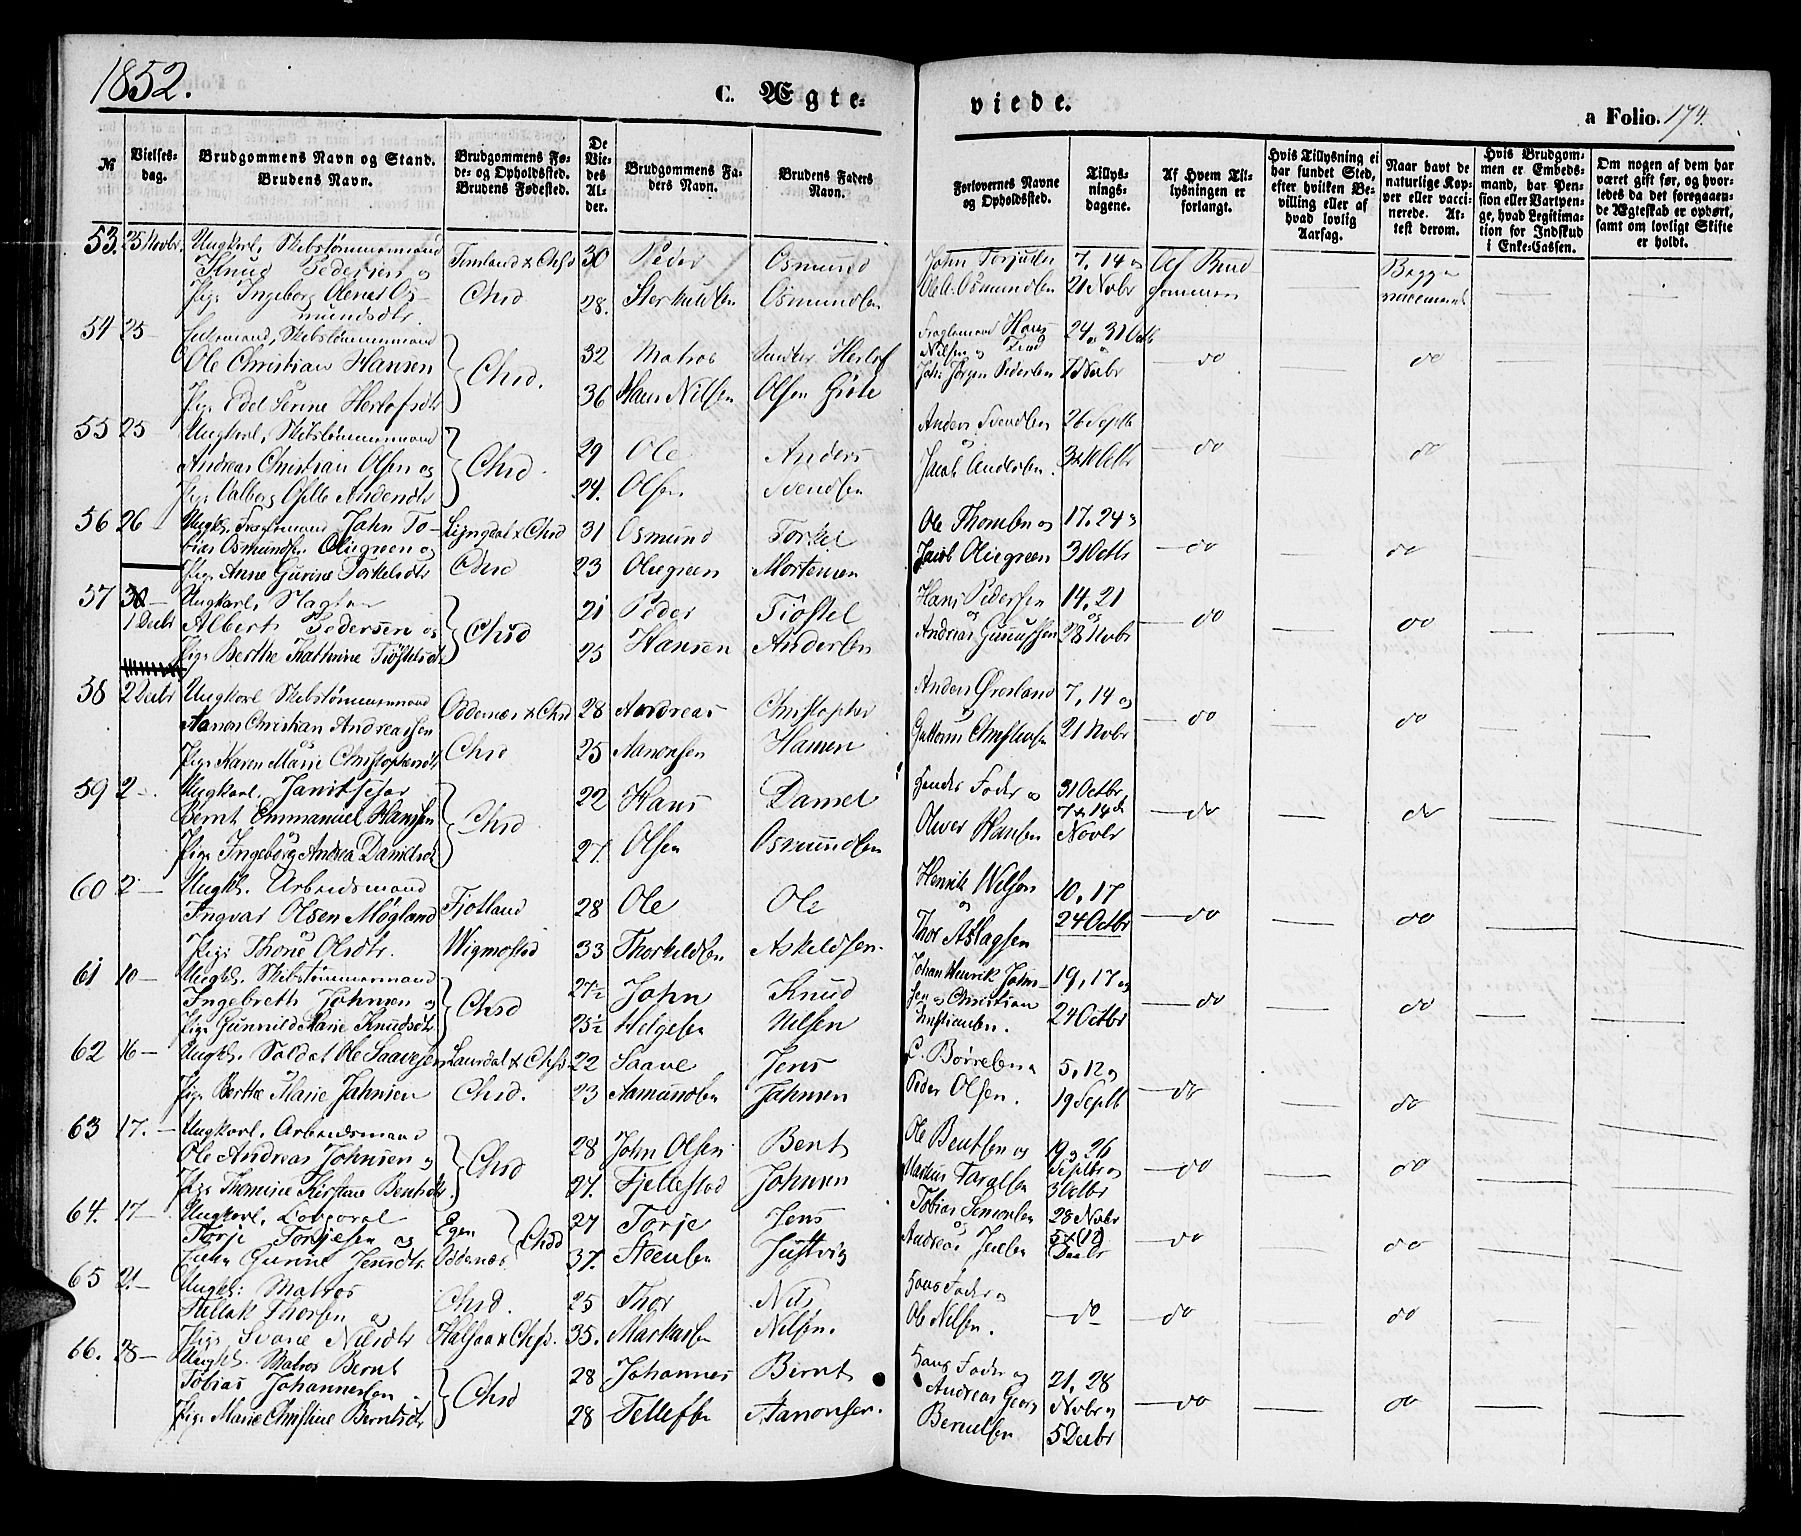 1852.
C. Ægte= viede.
a Folio. 174.
№
Vielses-
dag.
Brudgommens Navn og Stand.
Brudens Navn.
Brudgommens Fø-
de- og Opholdssted.
Brudens Fødested.
De
Vie-
des
Al-
der.
Brudgommens Fa-
ders Navn.
Brudens Faders
Navn.
Forlovernes Navne
og Opholdssted.
Tillys-
nings-
dagene.
Af Hvem Til-
lysningen er
forlangt.
Hvis Tillysning ei
har fundet Sted,
efter hvilken Be-
villing eller af
hvad lovlig
Aarsag.
Naar havt de
naturlige Kop-
per eller vacci-
nerede. At-
test derom.
Hvis Brudgom-
men er Embeds-
mand, har Pen-
sion eller Vartpen-
ge, hvad Legitima-
tion for Indskud
i Enke-Cassen.
Om nogen af dem har
været gift før, og hvor-
ledes da det foregaaen-
de Ægteskab er ophørt,
samt om lovligt Skifte
er holdt.
53. 25 Novbr. Ungkarl, Skibstømmermand
Knud Pedersen og
Pige Ingeborg Olene Os-
mundsdtr.
Chsd
30 Peder Osmund
28. Osmundsen
7, 14 og
21 Novbr
Af Brud
gommen
Begge
vaccinerede
54 25 — Skibstømmermand
Ole Christian Hansen
Pige Edel Serine Herlofsdtr
Chsd.
32 Matros Herlof
36 Hans Nilsen Olsen
Nilsen og
Pedersen
24, 31 Octb
7 Novbr
do do
55 25 Ungkarl, Skibstømmermand
Andreas Christian Olsen og
Pige Valborg Andersdtr
Chsd.
29 Ole Anders
24. Olsen Svendsen
Anders Svendsen
Jacob Andersen.
26 Septb
do do
56 26 — Ungk. John To-
bias Osmundsen Oliegreen og
Pige Anne Gurine Torkelsdtr
Lyngdal & Chsd
31 Osmund Torkel
23 Oliegreen Mortensen
Ole Thomsen og
Jacob Oliegreen
17, 24 og
31 Octb
do do
57 30 —
1 Decbr
Ungkarl,
Albert Pedersen og
Pige Berthe Kathrine Tjøstelsdtr
Chsd
21 Peder Tjøstel
25 Hansen Andersen
Hans Pedersen
og
Andreas Gunussen
14, 21
og
28 Novbr
do do
58 2 Decbr Ungkarl Skibstømmermand
Aanon Christian Andreassen
og
Pige Karen Marie Christophersdtr
Oddernæs & Chsd
Chsd
28 Andreas Christopher
25 Aanonsen Hansen
Anders Øresland
Guttorm Christensen
7, 14 og
21 Novbr
do do
59 2 — Ungkarl, Janitschar
Bernt Emmanuel Hanssen
Pige Ingeborg Andrea Danielsdtr
Chsd
22 Hans Daniel
27. Olsen Osmundsen
Fader og
Oliver Hansen
31 Octbr
7 & 14de
Novbr
do do
60 2 — Ungk. Arbeidsmand
Ingvar Olsen Møgland
Pige Thone Olsdtr.
Fjotland
28 Ole Ole
33 Thorkildsen Askildsen.
Henrik Nilsen
og
Thor Aslagsen
10, 17
24 Octbr
do do
61 10 — Ungk. Skibstømmermand
Ingebreth Johnsen og
Pige Gunnild Marie Knudsdtr.
Chsd
27½ John Knud
25½ Helgesen Nilsen
Johan Henrik John-
sen og Christian
Christiansen.
19, 17 og
24 Octbr
do do
62 16 — Ungk. Soldat Ole Saavesen
Pige Berthe Marie Jahnsen
Laurdal & Chsd
Chsd.
22 Saave Jens
23 Aamundsen Jahnsen
Peder Olsen.
5, 12 og
19 Septb
do do
63 17. — Ungkarl, Arbeidsmand
Ole Andreas Johnsen og
Pige Thomine Kirstine Berntsdtr.
Chsd
28 John Olsen Bent
27. Fjellestad Johnsen
Ole Bentsen og
19 og 26
Septbr og
3 Octbr
do do
64. 17 — Ungkarl,
Torje Torjesen og
Gurine Jensdtr
Egen
Oddernæs
Chsd
27 Torje Jens
37. Steensen
Tobias Simonsen
og
Andreas Jensen
28 Novbr
Decbr
do do
65 21 — Ungk: Matros
Thorsen og
Pige Nilsdtr
Chsd.
25 Thor Nils
35. Nilsen.
Fader og
Ole Nilsen.
do do do
66. 28 — Ungk. Matros Bernt
Tobias Johannessen
Pige Marie Christine Berntsdtr
Chsd
28 Johannes Bernt
28 Tellefsen Aanonsen.
Fader og
Andreas Georg
Berntsen
21, 28
Novbr og
5 Decbr
do do